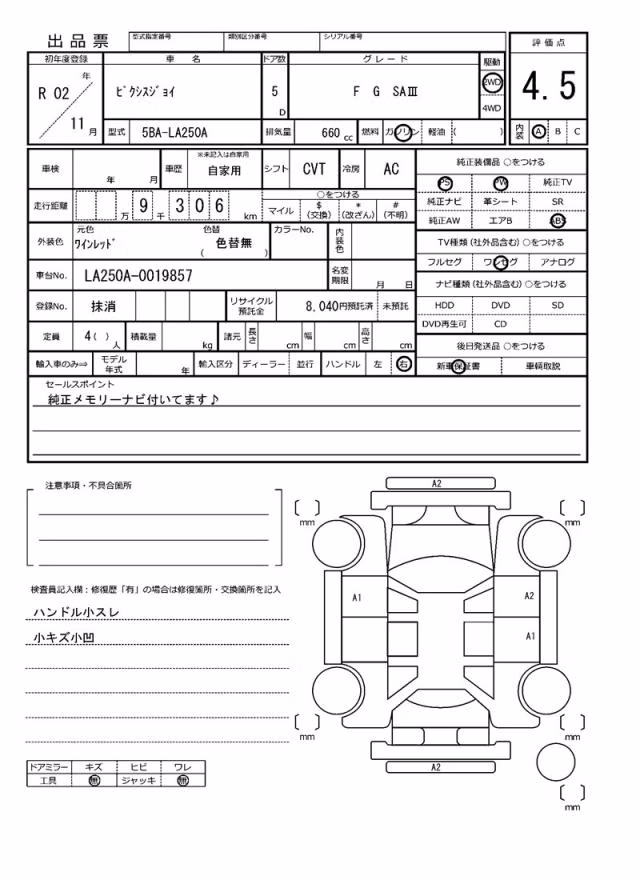 出品票 型式指定番号 類別区分番号 シリアル番号
評価点
4.5
内装 A B C
初年度登録 車名 ドア数 グレード 駆動
R 02 年 11 月
ﾋﾟｸｼｽｼﾞｮｲ 5 D F G SAⅢ 2WD 4WD
型式 5BA-LA250A 排気量 660 cc 燃料 ガソリン 軽油 ( )
車検 年 月 車歴 ※未記入は自家用 自家用 シフト CVT 冷房 AC
走行距離 万 9 千 3 0 6 km
○をつける
マイル $ (交換) * (改ざん) # (不明)
外装色 元色 ﾜｲﾝﾚｯﾄﾞ 色替 ( 色替無 ) カラーNo. 内装色
車台No. LA250A-0019857 名変期限 月 日
登録No. 抹消 リサイクル預託金 8,040円預託済 未預託
定員 4( ) 人 積載量 kg 諸元 長さ cm 幅 cm 高さ cm
輸入車のみ⇒ モデル年式 年 輸入区分 ディーラー 並行 ハンドル 左 右
純正装備品 ○をつける
PS PW 純正TV
純正ナビ 革シート SR
純正AW エアB ABS
TV種類 (社外品含む) ○をつける
フルセグ ワンセグ アナログ
ナビ種類 (社外品含む) ○をつける
HDD DVD SD
DVD再生可 CD
後日発送品 ○をつける
新車保証書 車輌取説
セールスポイント
純正メモリーナビ付いてます♪
注意事項・不具合箇所
検査員記入欄：修復歴「有」の場合は修復箇所・交換箇所を記入
ハンドル小スレ
小キズ小凹
ドアミラー キズ ヒビ ワレ
工具 無 ジャッキ 無
A2
mm mm
A1 A2
A1
mm mm
A2
mm